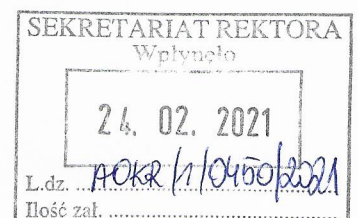 SEKRETARIAT REKTORA
Wpłynęło
24. 02. 2021
L.dz. AOKR/1/0450/2021
Ilość zał.